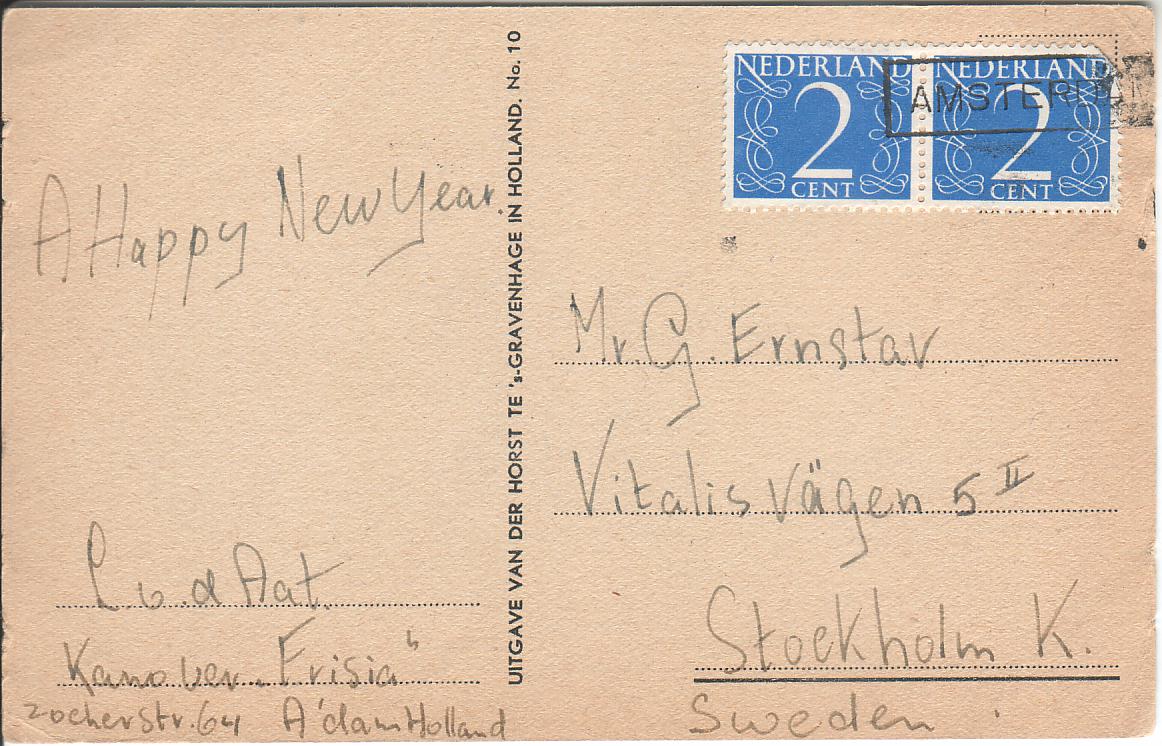 NEDERLAND NEDERLAND
2 2
CENT CENT
AMSTERDAM
A Happy New Year.
L. v. d Aat.
Kano ver. „Frisia"
Zocherstr. 64 A'dam Holland
UITGAVE VAN DER HORST TE 's-GRAVENHAGE IN HOLLAND. No. 10
Mr. G. Ernstav
Vitalisvägen 5 II
Stockholm K.
Sweden